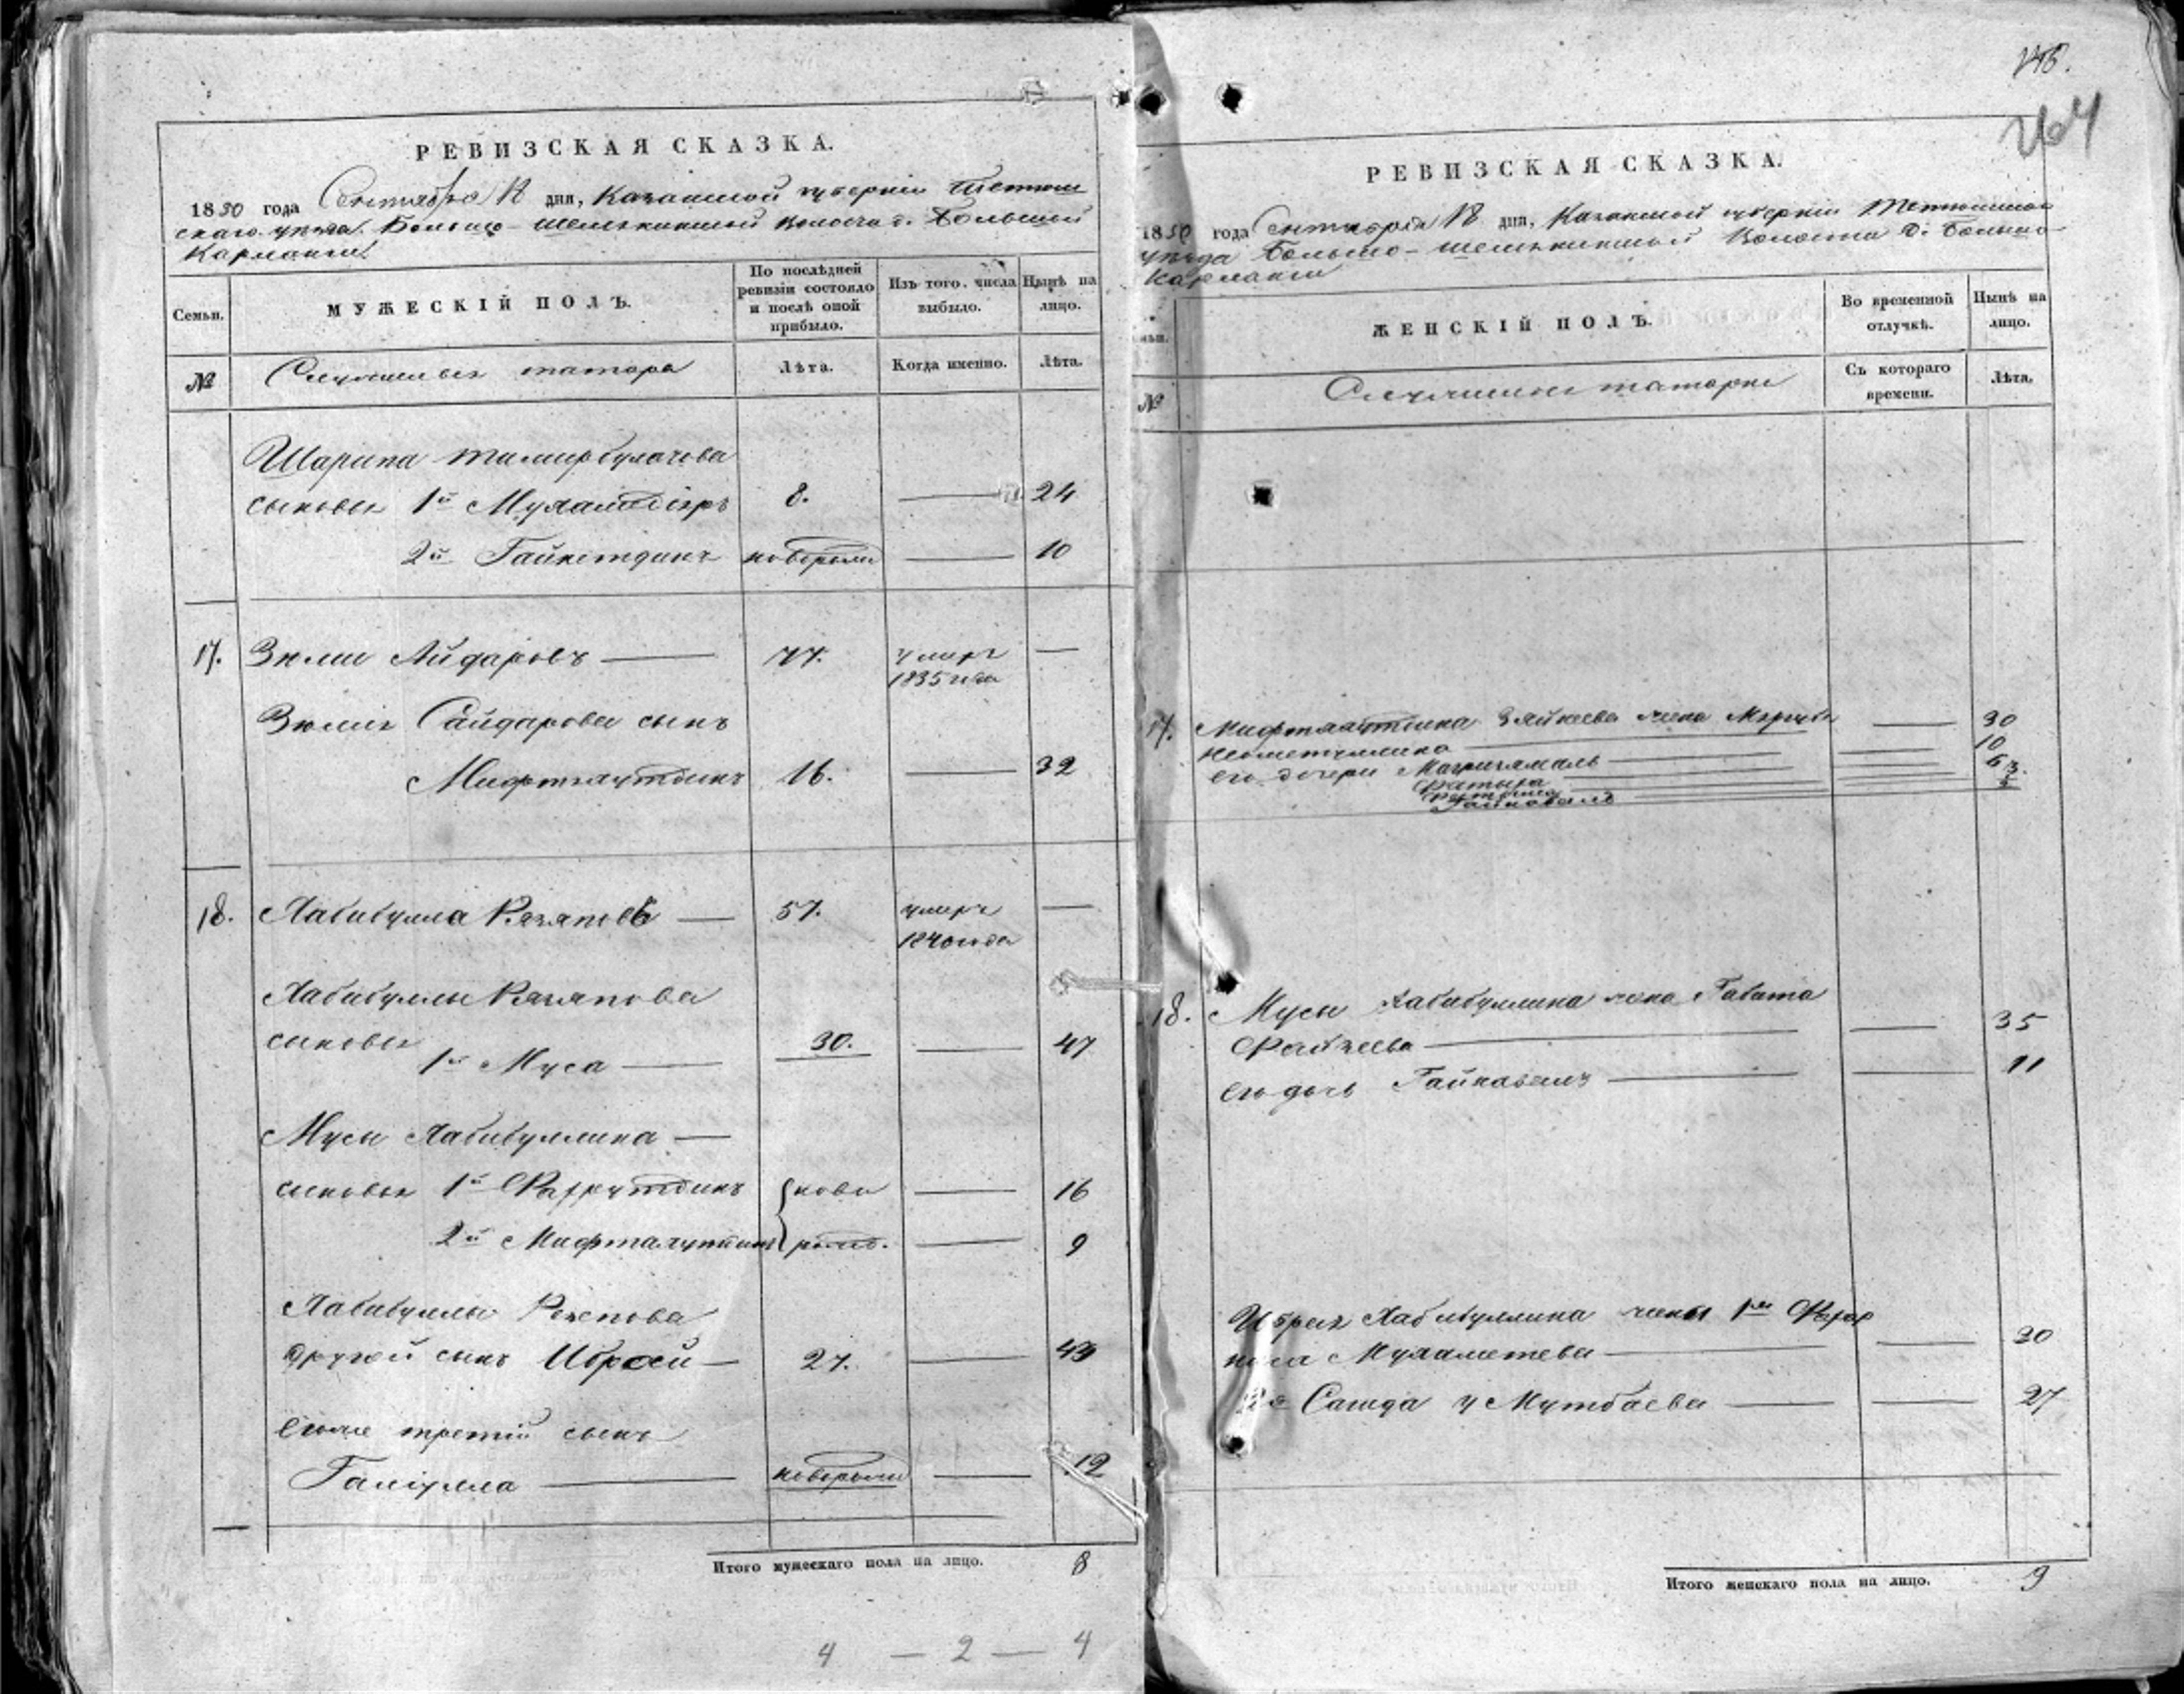 РЕВИЗСКАЯ СКАЗКА.
1850 года Сентября 18 дня, Казанской губерніи Тетюш
скаго уѣзда Большо-Шемякинской волости д. Большой
Карланги
Семьи. МУЖЕСКІЙ ПОЛЪ. По послѣдней ревизіи состояло и послѣ оной прибыло. Изъ того числа выбыло. Нынѣ на лицо.
№ Служилые татара Лѣта. Когда именно. Лѣта.
Шарипа Тимирбулатова
сыновья 1й 8. — 24
2й Гайнетдинъ новорожд — 10
17. Зюми Айдаровъ — 77. умеръ —
1835 года
Зюмия Сайдарова сынъ
Мифтахутдинъ 16. — 32
18. Хабибулла Рязяповъ — 57. умеръ —
1840 года
Хабибуллы Рязяпова
сыновья
1й Муса — 30. — 47
Мусы Хабибуллина —
сыновья 1й Фахрутдинъ нова — 16
2й Мифтахутдинъ рожд. — 9
Хабибуллы Резепова
другой сынъ Ибрай — 27. — 43
Егоже третій сынъ
Галіулла — новорожд — 12
Итого мужескаго пола на лицо. 8
4 — 2 — 4
264
РЕВИЗСКАЯ СКАЗКА.
1850 года Сентября 18 дня, Казанской губерніи Тетюшскаго
уѣзда Большо-Шемякинской Волости д. Большо-
Карланги
ЖЕНСКІЙ ПОЛЪ. Во временной отлучкѣ. Нынѣ на лицо.
№ Служилые татарки Съ котораго времени. Лѣта.
17. Мифтахутдина жена — 30
— 10
его дочери — 6
18. Мусы Хабибуллина жена Габита
— — 35
Его дочь Гайнавалъ — — 11
Ибрая Хабибуллина жены 1я
Мухаметева — — 30
2я Сагида — — 27
Итого женскаго пола на лицо. 9